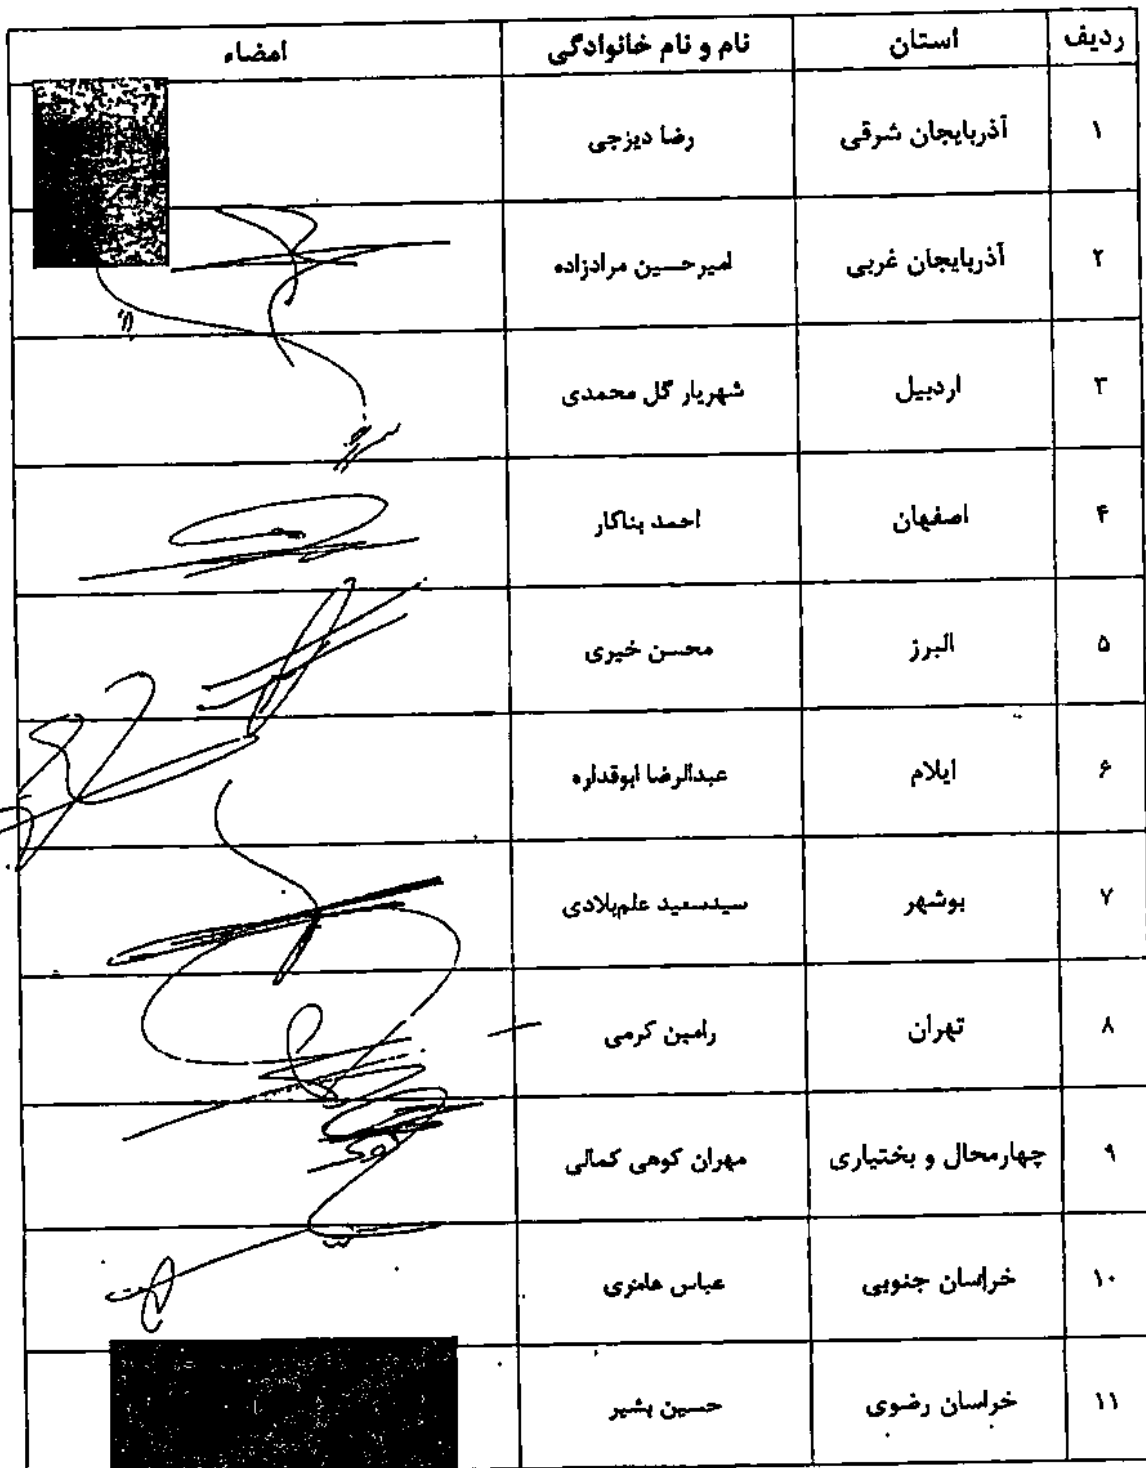 ردیف استان نام و نام خانوادگی امضاء
۱ آذربایجان شرقی رضا دیزجی
۲ آذربایجان غربی امیرحسین مرادزاده
۳ اردبیل شهریار گل محمدی
۴ اصفهان احمد بناکار
۵ البرز محسن خیری
۶ ایلام عبدالرضا ابوقداره
۷ بوشهر سیدسعید علم‌بلادی
۸ تهران رامین کرمی
۹ چهارمحال و بختیاری مهران کوهی کمالی
۱۰ خراسان جنوبی عباس عامری
۱۱ خراسان رضوی حسین بشیر